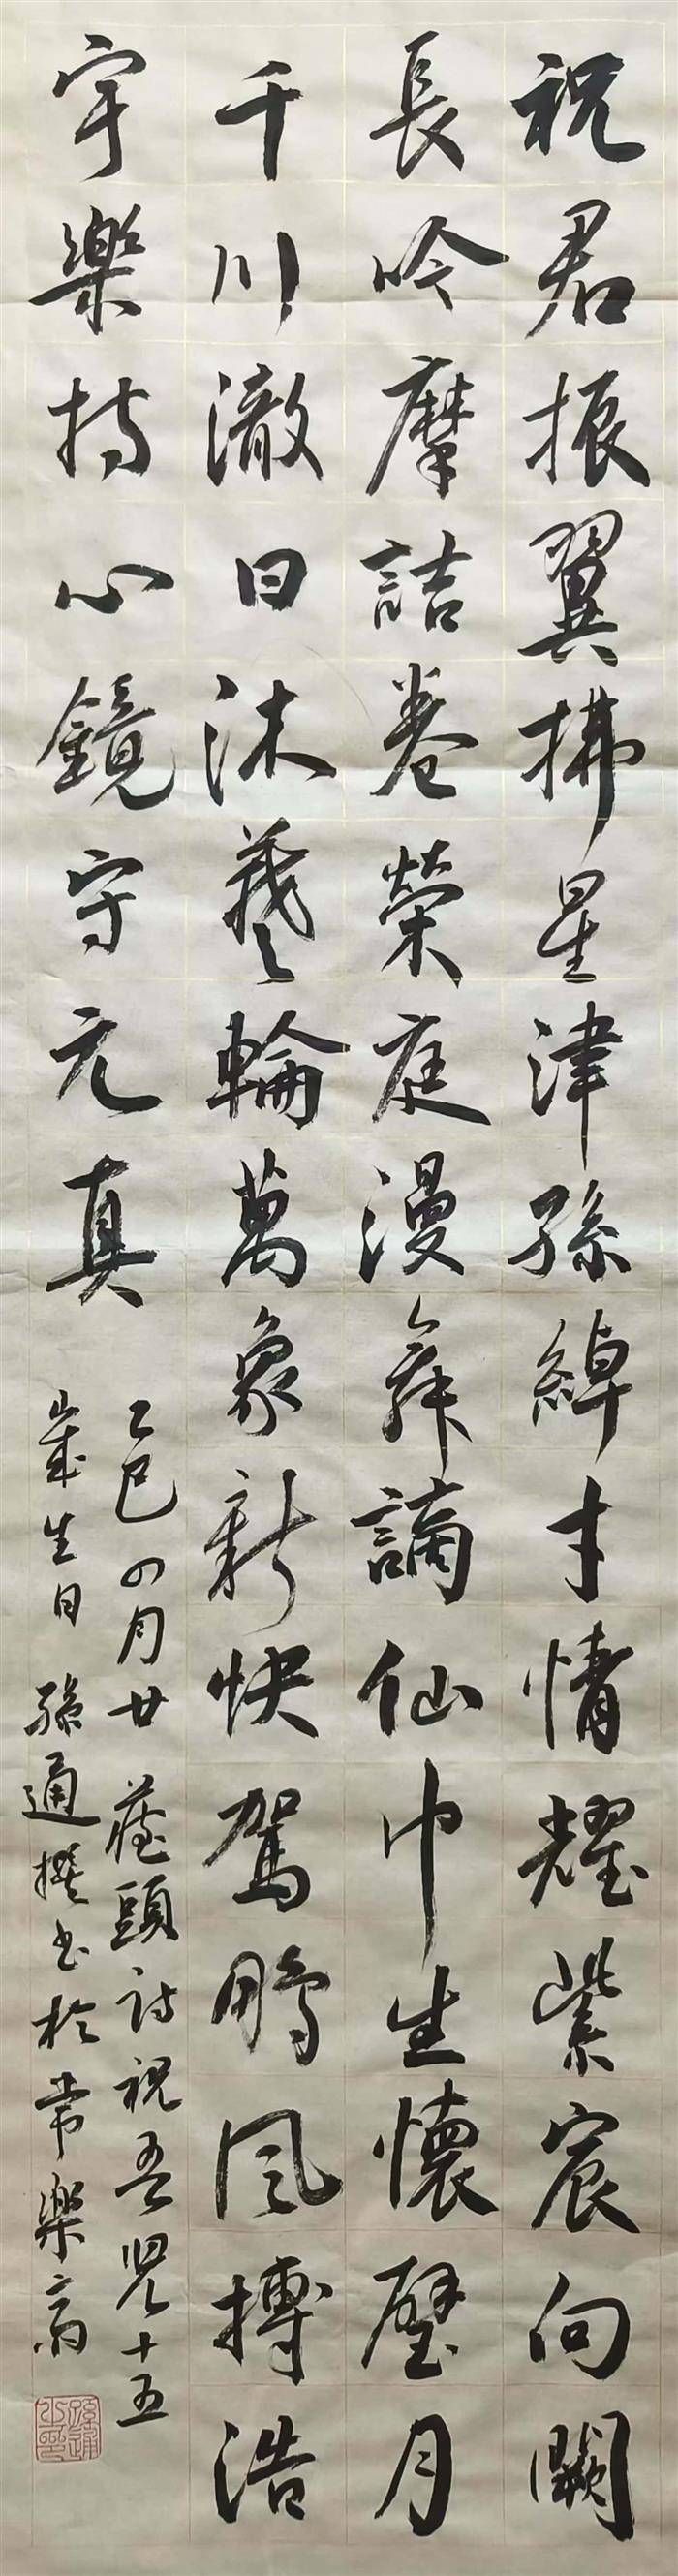 祝君振翼拂星津孫綽才情耀紫宸向闕
長吟摩詰卷榮庭漫舞謫仙巾生懷璧月
千川澈日沐羲輪萬象新快駕鵬風搏浩
宇樂持心鏡守元真
乙巳四月廿 藏頭詩祝吾兒十五
歲生日 孫通撰書於常樂齋
孫通之印